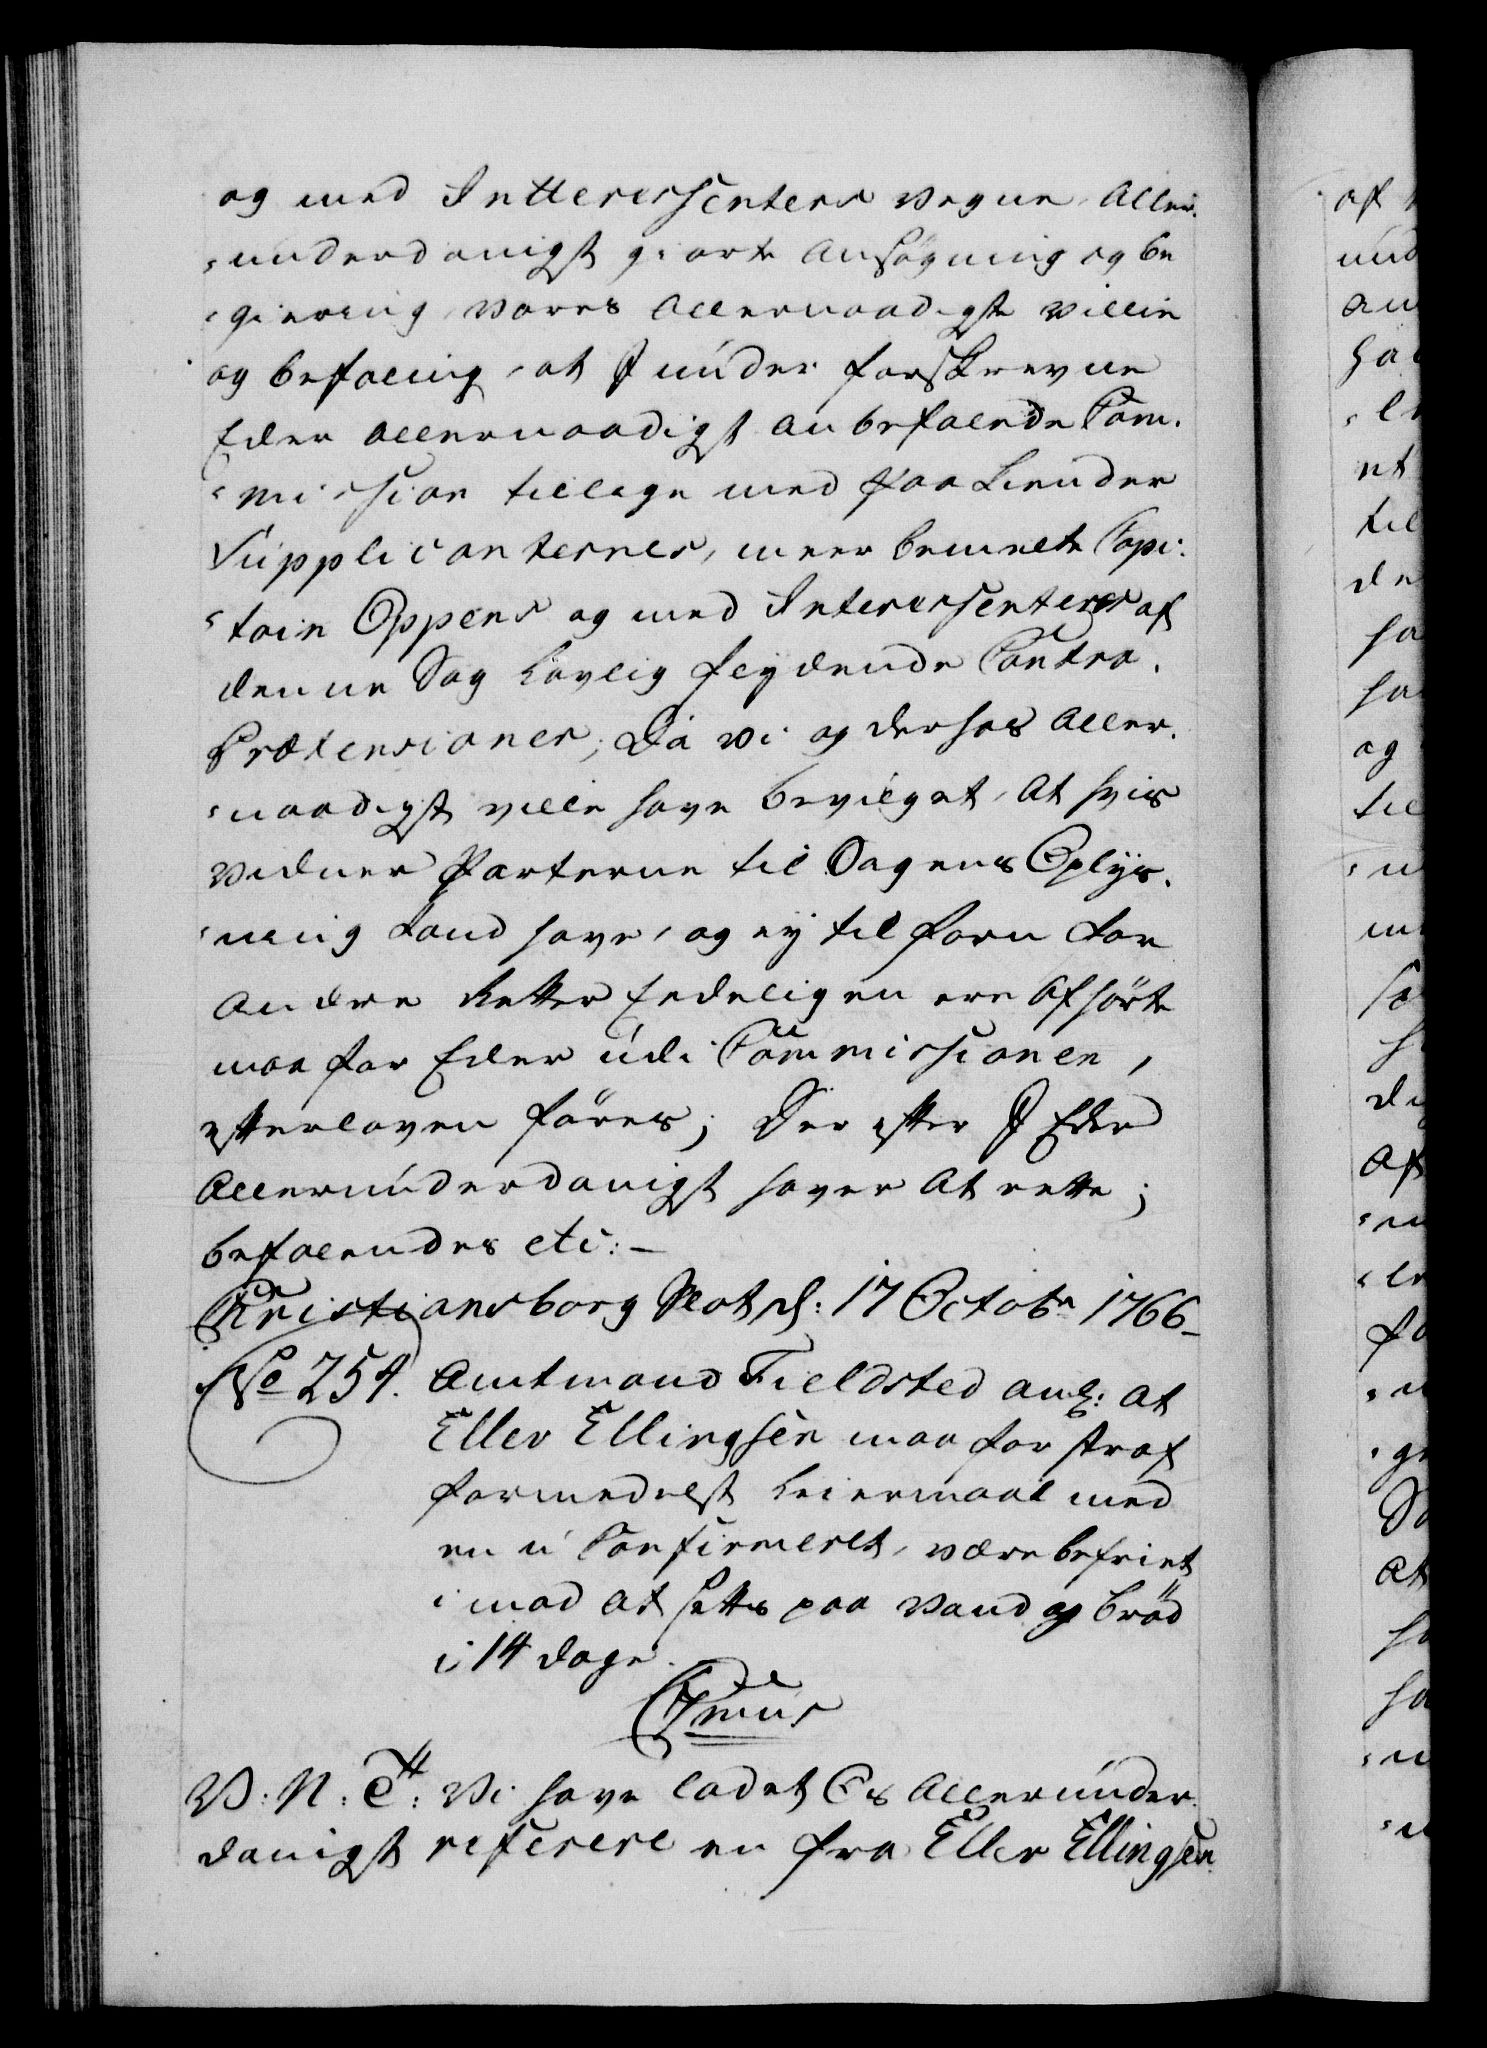 og med Intteressenters vegne Aller-
underdanigst giorte Ansøgning og be
giering vores allernaadigste villie
og befaling, at I under forskrevne
Eder allernaadigst anbefalede Com-
mission tillige med paakiender
Supplicanternes, meer bemelte Capi-
tain Oppens og med Interessenteres af
denne Sag lovlig flydende Contra-
Prætensioner; Da vi og derhos Aller-
naadigst ville have bevilget, At hvis
vidner Parterne til Sagens Oplys-
ning kand have, og ey tilforn for
Andre Retter Eedeligen ere Afhørte
maa for Eder udi Commissionen,
efterloven føres; Der efter I Eder
Allerunderdanigst haver At rette;
befalendes etc: –
Christiansborg Slot d: 17 Octobr 1766–
No 254. Amtmand Fieldsted anl: at
Eller Ellingsen maa for straf
formedelst Leiermaal med
en u Confirmeret, være befriet
imod at settes paa Vand og brød
i 14 dage.
V: N: C: Vi have ladet Os Allerunder-
danigst referere en fra Eller Ellingsen